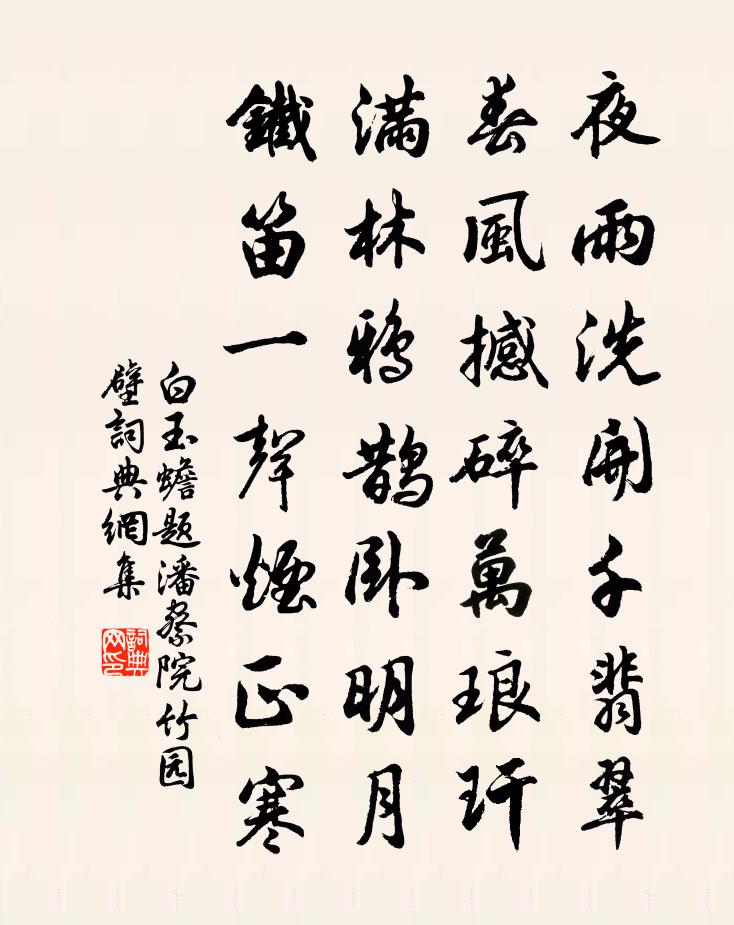 夜雨洗開千翡翠
春風撼碎萬琅玕
滿林鴉鵲臥明月
鐵笛一聲煙正寒
白玉蟾题潘察院竹园
壁詞典網集
詞典网印